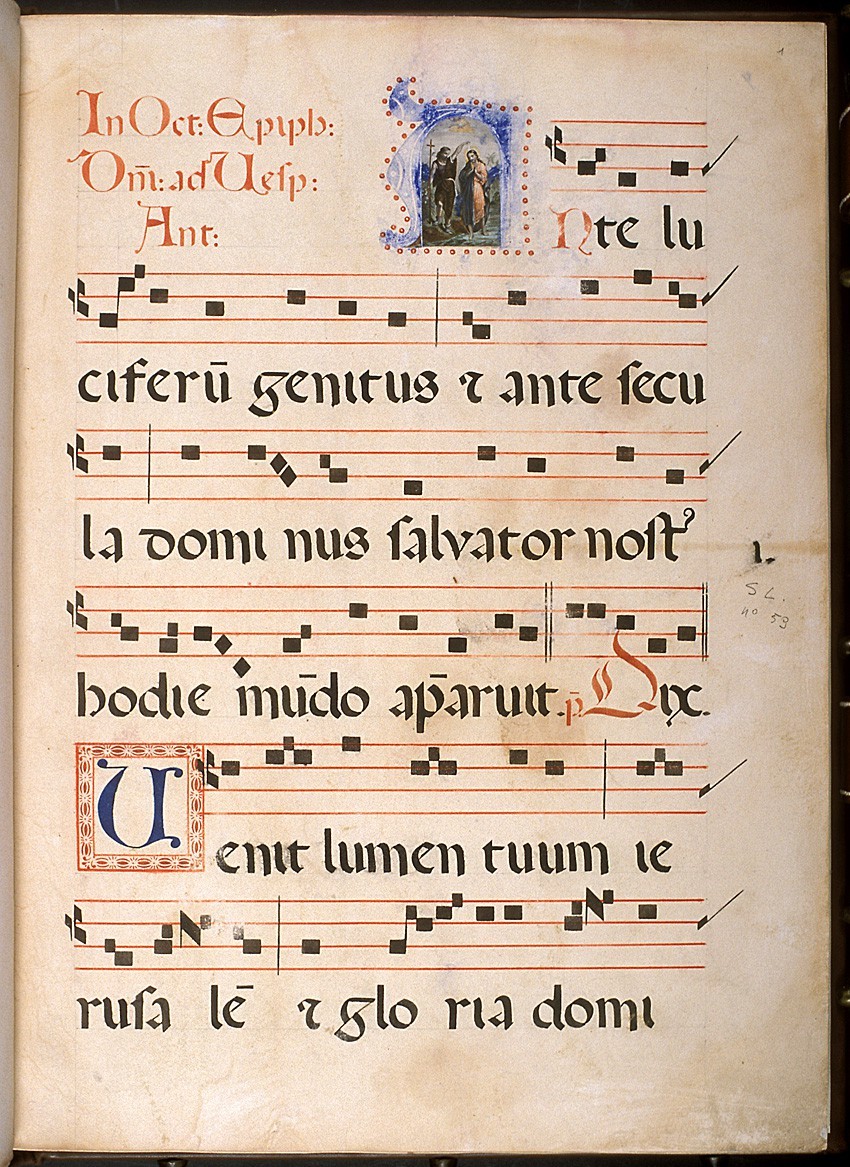 1
In Oct: Epiph:
Dm̄: ad Uesp:
Ant:
Ante lu
ciferū genitus ⁊ ante ſecu
la domi nus ſalvator noſt᾿
1.
SL.
nº 59
hodie mūdo ap̄aruit. p̄ Dix.
Uenit lumen tuum ie
ruſa lē ⁊ glo ria domi